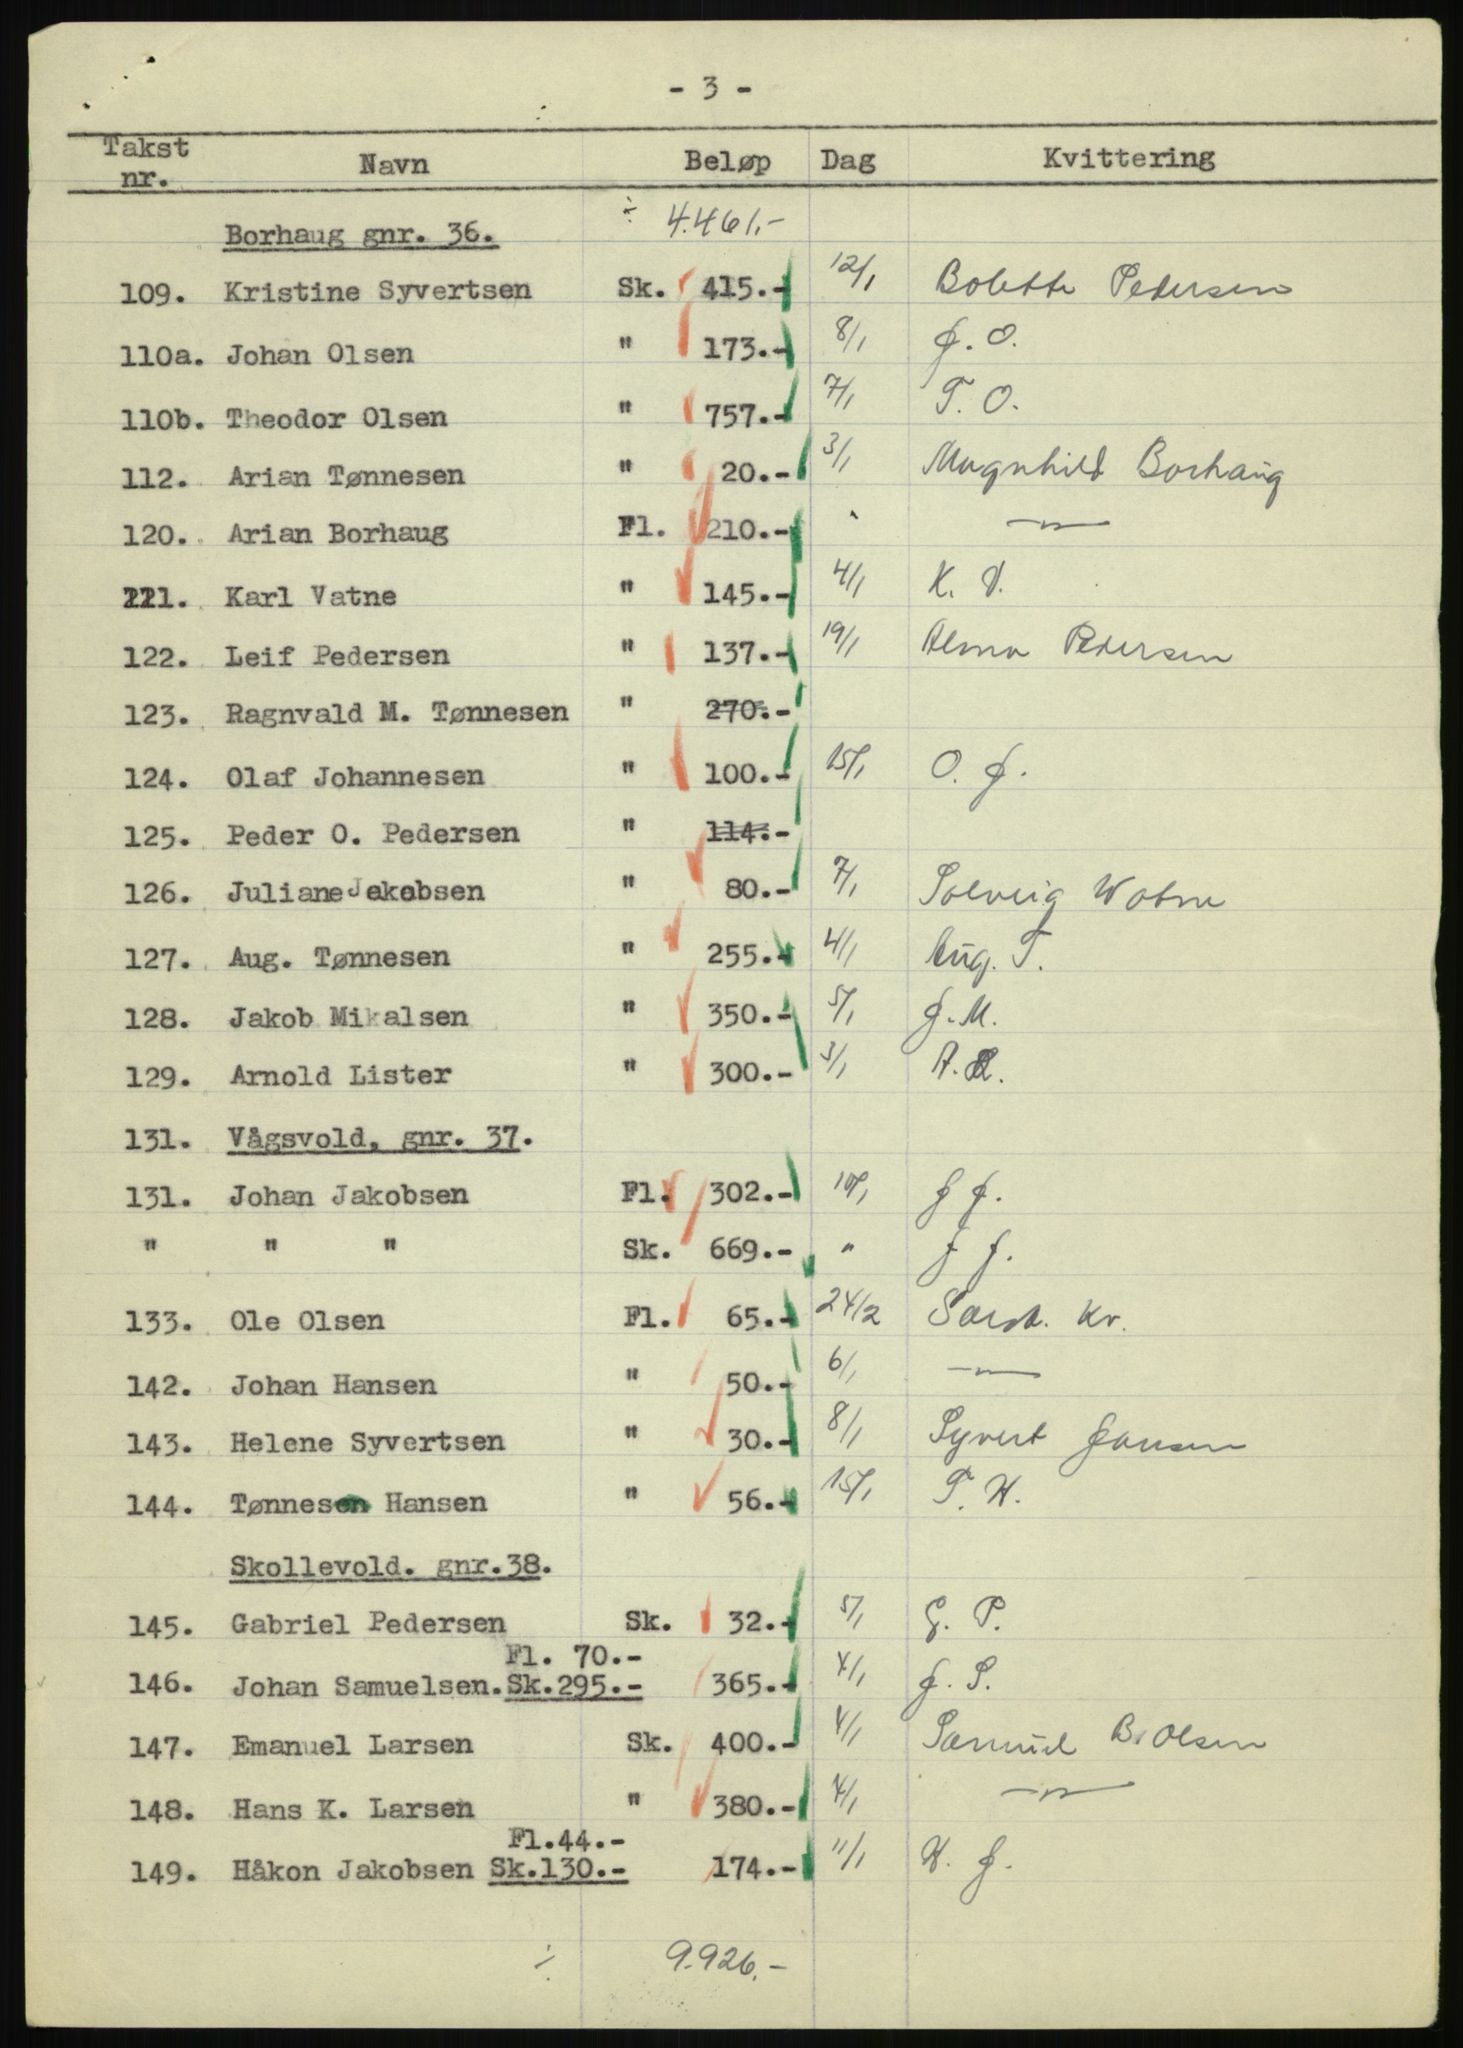 - 3 -
Takst nr. Navn Beløp Dag Kvittering
Borhaug gnr. 36. ÷ 4.461,-
109. Kristine Syvertsen Sk. 415.- 12/1 Bolette Pedersen
110a. Johan Olsen " 173.- 8/1 J. O.
110b. Theodor Olsen " 757.- 7/1 T. O.
112. Arian Tønnesen " 20.- 3/1 Magnhild Borhaug
120. Arian Borhaug Fl. 210.- " —"—
121. Karl Vatne " 145.- 4/1 K. V.
122. Leif Pedersen " 137.- 19/1 Alma Pedersen
123. Ragnvald M. Tønnesen " 270.-
124. Olaf Johannesen " 100.- 15/1 O. J.
125. Peder O. Pedersen " 114.-
126. Juliane Jakobsen " 80.- 7/1 Solveig Watne
127. Aug. Tønnesen " 255.- 4/1 Aug. T.
128. Jakob Mikalsen " 350.- 5/1 J. M.
129. Arnold Lister " 300.- 3/1 A. L.
131. Vågsvold, gnr. 37.
131. Johan Jakobsen Fl. 302.- 10/1 J J.
" " " Sk. 669.- " J J.
133. Ole Olsen Fl. 65.- 24/2 Kr.
142. Johan Hansen " 50.- 6/1 —"—
143. Helene Syvertsen " 30.- 8/1 Syvert Jansen
144. Tønnesen Hansen " 56.- 15/1 T. H.
Skollevold. gnr.38.
145. Gabriel Pedersen Sk. 32.- 5/1 G. P.
Fl. 70.-
146. Johan Samuelsen. Sk.295.- 365.- 4/1 J. S.
147. Emanuel Larsen Sk. 400.- 4/1 Samuel B. Olsen
148. Hans K. Larsen " 380.- 4/1 —"—
Fl.44.-
149. Håkon Jakobsen Sk.130.- 174.- 11/1 H. J.
÷ 9.926.-